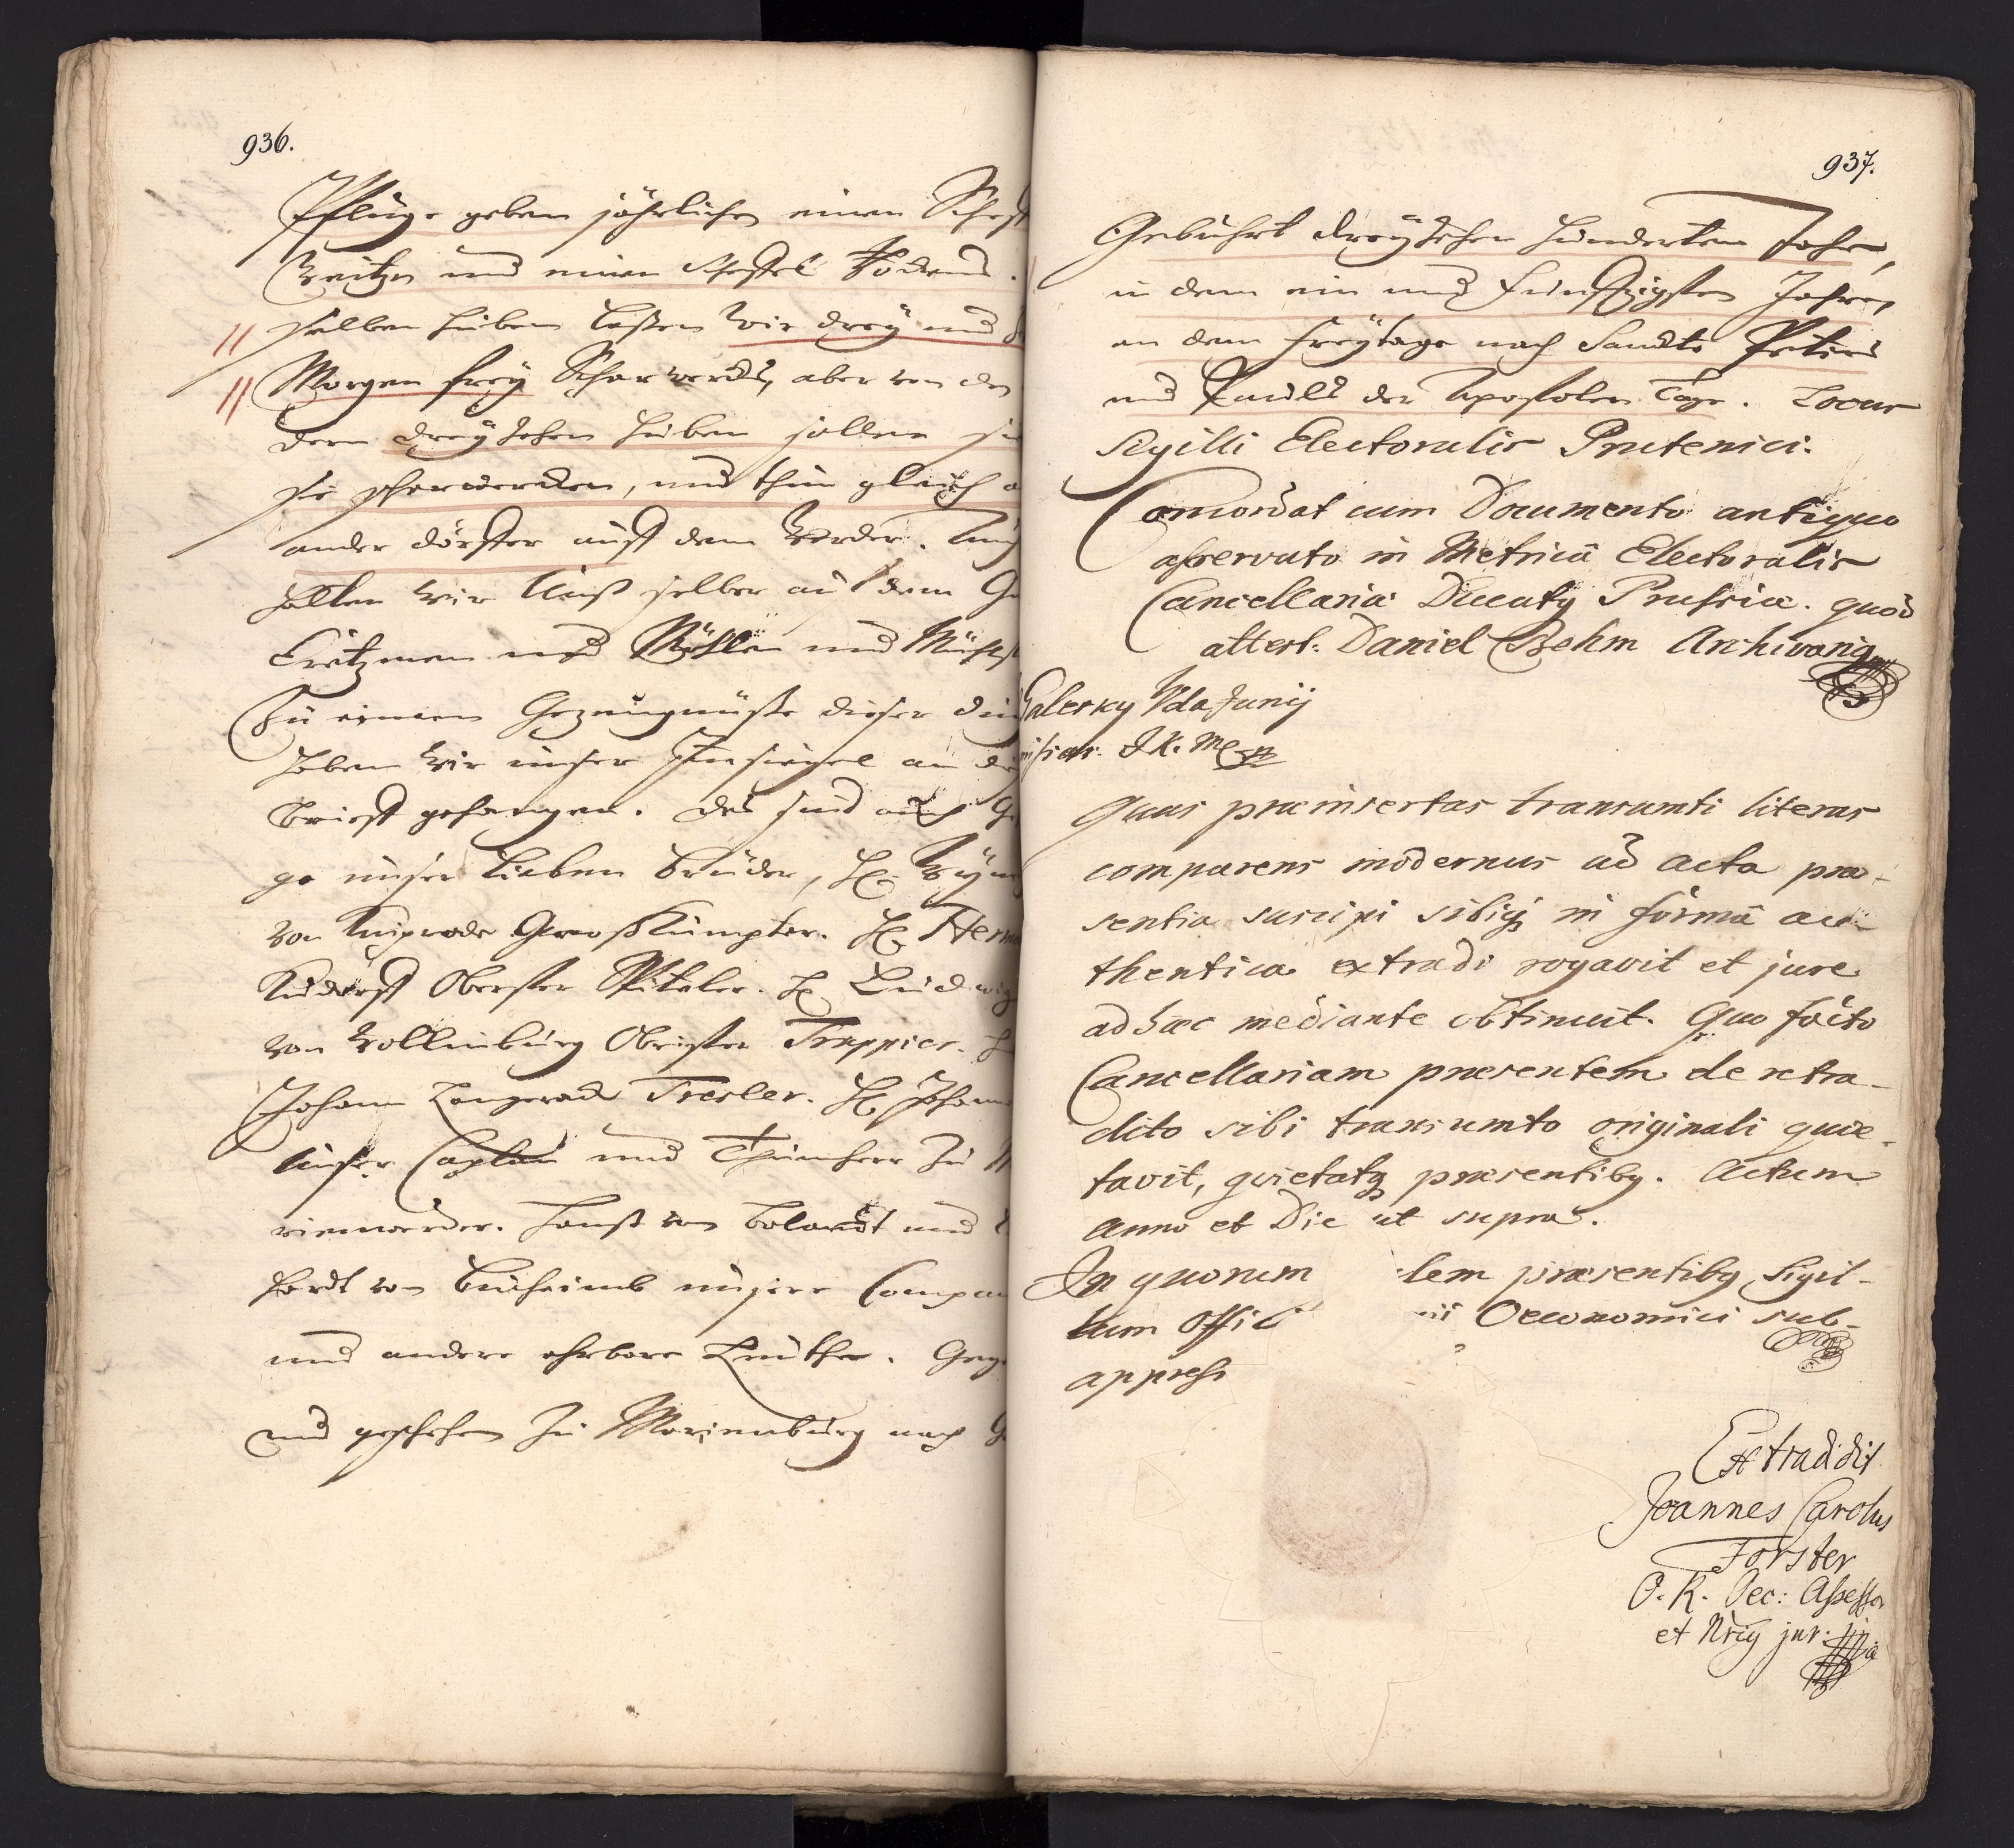 936.
Pflüge geben jährlichen einen Scheff
Weitzen und einen Scheffel Rockens.
selben Huben laßen Wir drey und
Morgen frey Scharwercks, aber von den
dern dreyzehen Huben sollen sie
sie scharwercken, und thun gleich
ander dörffer auff dem Werder. Auch
halten Wir Unß selber auf dem
Cretzmen und Mühlen und Mühlst
Zu einem Gezeugnüße dieser din
haben Wir unser Insiegel an
Brieff gehangen. des sind auch
ge unser Lieben Brüder, H.
von Kniprode GroosKumpter. H. Herm
Kudorff Oberster Spitaler. H. Ludwig
von Wollenburg Obrister Trappier.
Johann Langerade Tresler. H. Johann
Unser Caplan und Thumherr zu
rienwerder. Hanß von Bolandt und
hardt von Bucheimb unsere Compan
und andere ehrbare Leuthe. Geg
und geschehen zu Marienburg nach
937.
Gebuhrt dreyzehen hunderten Jahr,
in dem ein und funffzigsten Jahren,
an dem freytage nach Sanckte Peters
und Pauls der Apostolen Tage. Locus
Sigilli Electoralis Prutenici.
Concordat cum Documento antiquo
asservato in Metricâ Electoralis
Cancellariæ Ducatq Prussiæ. quod
attest: Daniel Behm Archivariq
Galesky Vda Junij
J. K. Mc
Quas præinsertas transumti literas
comparens modernus ad acta præ-
sentia suscipi sibiq in formâ au-
thentica extradi rogavit et jure
ad hæc mediante obtinuit. Quo facto
Cancellariam præsentem de retra-
dito sibi transumto originali quie-
tavit, qvietatq præsentibq. Actum
Anno et Die ut supra.
In quorum dem præsentibq Sigil-
lum Offic ii Oeconomici sub-
appress
Extradidit
Joannes Carolus
Forster
O. K. Oec: Assessor
et Nriq jur.